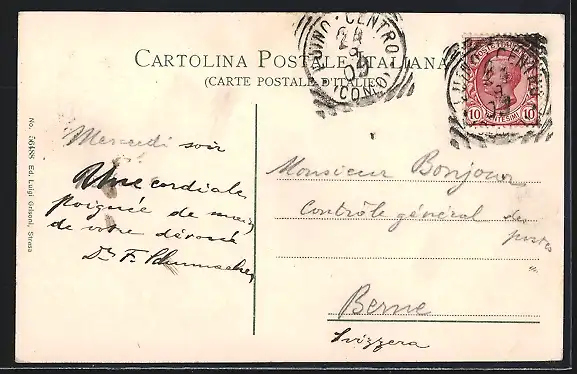 CARTOLINA POSTALE ITALIANA
(CARTE POSTALE D'ITALIE)
LUINO · CENTRO
24
9
09
(COMO)
LUINO · CENTRO
24
9
09
POSTE ITALIANE
10 CENTESIMI 10
No. 16488 Ed. Luigi Grisoni, Stresa
Mercredi soir
Une cordiale
poignée de main
de votre dévoué
Dr F. Schumacher
Monsieur Bonjour
Contrôle général des
postes
"
Berne
Svizzera